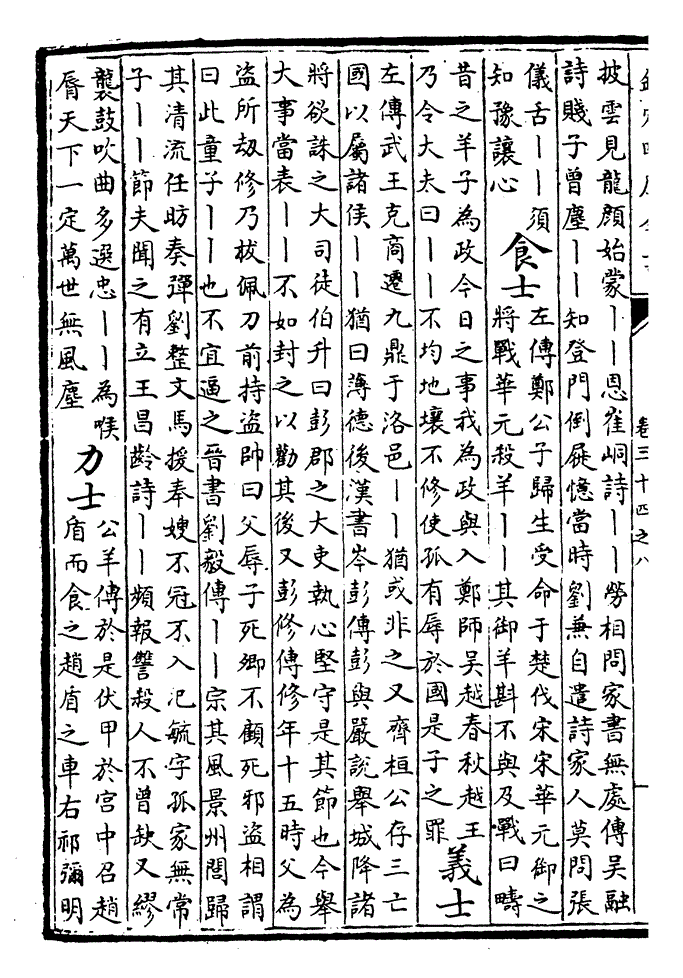 披雲見龍顔始蒙丨丨恩崔峒詩丨丨勞相問家書無處傳吳融
詩賤子曾塵丨丨知登門倒屣憶當時劉兼自遣詩家人莫問張
儀舌丨丨須
知豫讓心
食士
左傳鄭公子歸生受命于楚伐宋宋華元御之
將戰華元殺羊丨丨其御羊斟不與及戰曰疇
昔之羊子為政今日之事我為政與入鄭師吳越春秋越王
乃令大夫曰丨丨不均地壤不修使孤有辱於國是子之罪
義士
左傳武王克商遷九鼎于洛邑丨丨猶或非之又齊桓公存三亡
國以屬諸侯丨丨猶曰薄德後漢書岑彭傳彭與嚴說舉城降諸
將欲誅之大司徒伯升曰彭郡之大吏執心堅守是其節也今舉
大事當表丨丨不如封之以勸其後又彭修傳修年十五時父為
盜所刼修乃拔佩刀前持盜帥曰父辱子死卿不顧死邪盜相謂
曰此童子丨丨也不宜逼之晉書劉毅傳丨丨宗其風景州閭歸
其清流任昉奏彈劉整文馬援奉嫂不冠不入氾毓字孤家無常
子丨丨節夫聞之有立王昌齡詩丨丨頻報讐殺人不曾缺又繆
襲鼓吹曲多選忠丨丨為喉
脣天下一定萬世無風塵
力士
公羊傳於是伏甲於宮中召趙
盾而食之趙盾之車右祁彌明
卷三十四之八